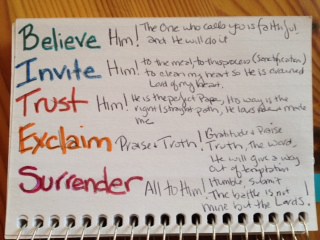 Believe Him! The One who calls you is faithful
and He will do it
Invite Him! to the mess, to the process (Sanctification)
to clean my heart so He is crowned
Lord of my heart.
Trust Him! He is the perfect Papa, His way is the
right/straight path, He has me
Exclaim Praise & Truth! Gratitude & Praise
Truth, The Word.
He will give a way
out of temptation
Surrender All to Him! Humble, submit
The battle is not
mine but the Lord's!